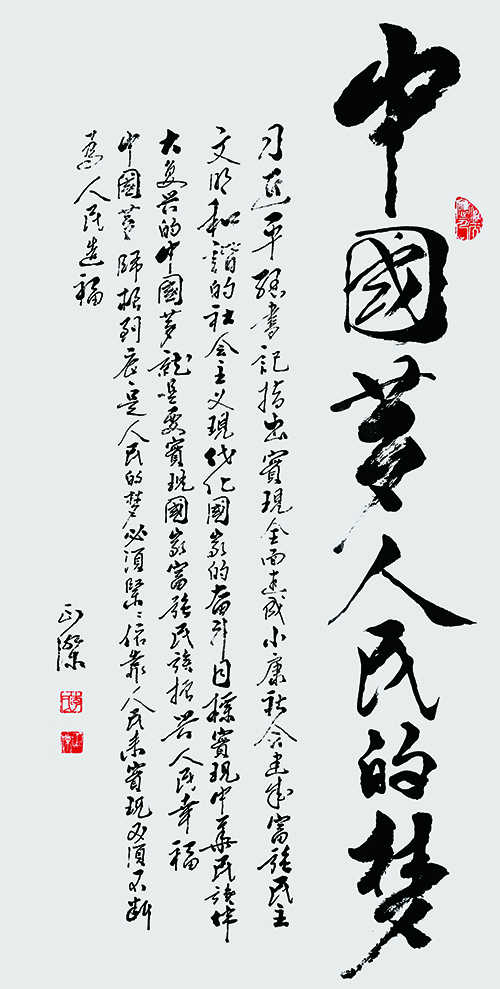 中國夢人民的夢
习近平總書記指出實現全面建成小康社会建成富強民主
文明和諧的社会主义現代化國家的奋斗目標實現中華民族伟
大复兴的中國夢就是要實現國家富強民族振兴人民幸福
中國夢歸根到底是人民的梦必須緊緊依靠人民来實現必須不断
為人民造福
正潔